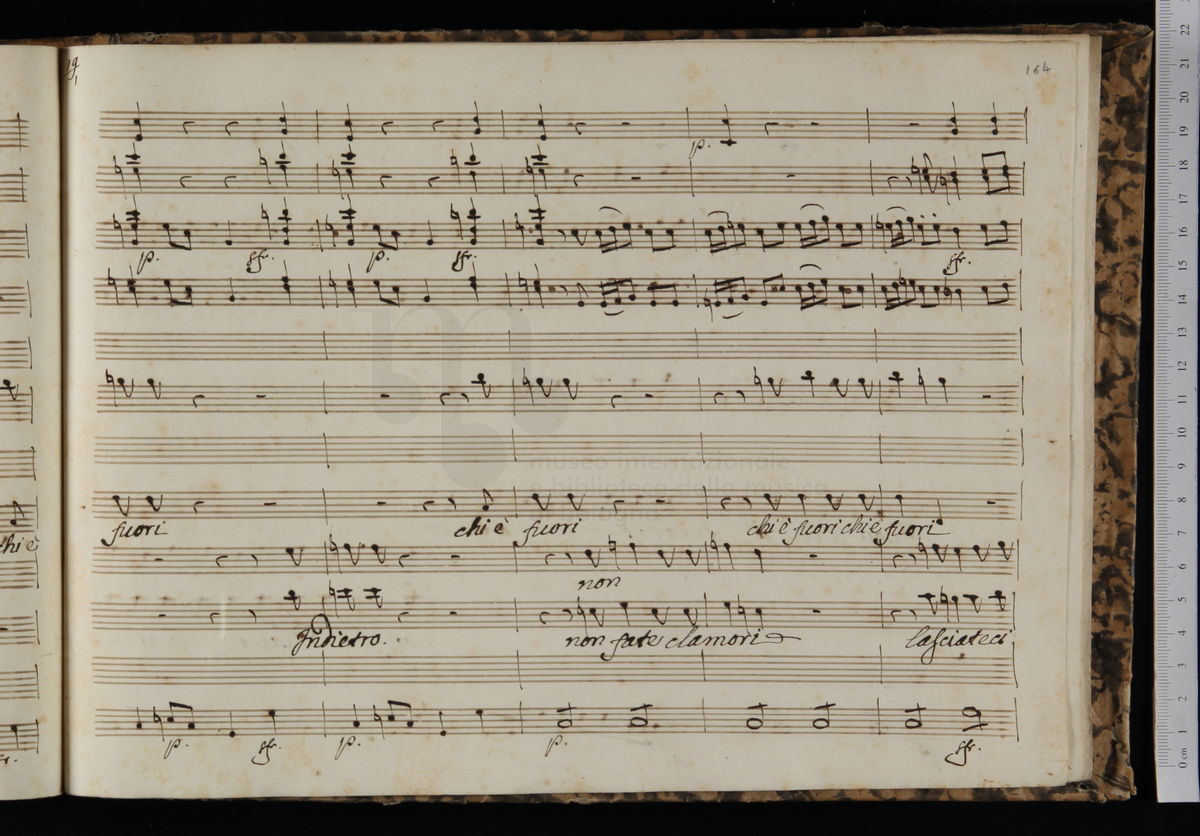 164
p.
p. sfr. p. sfr. sfr.
museo internazionale
e biblioteca della musica
fuori chi è fuori chi è fuori chi è fuori
chi è
non
Indietro. non fate clamori lasciateci
p. sfr. p. p. sfr.
0 cm 1 2 3 4 5 6 7 8 9 10 11 12 13 14 15 16 17 18 19 20 21 22